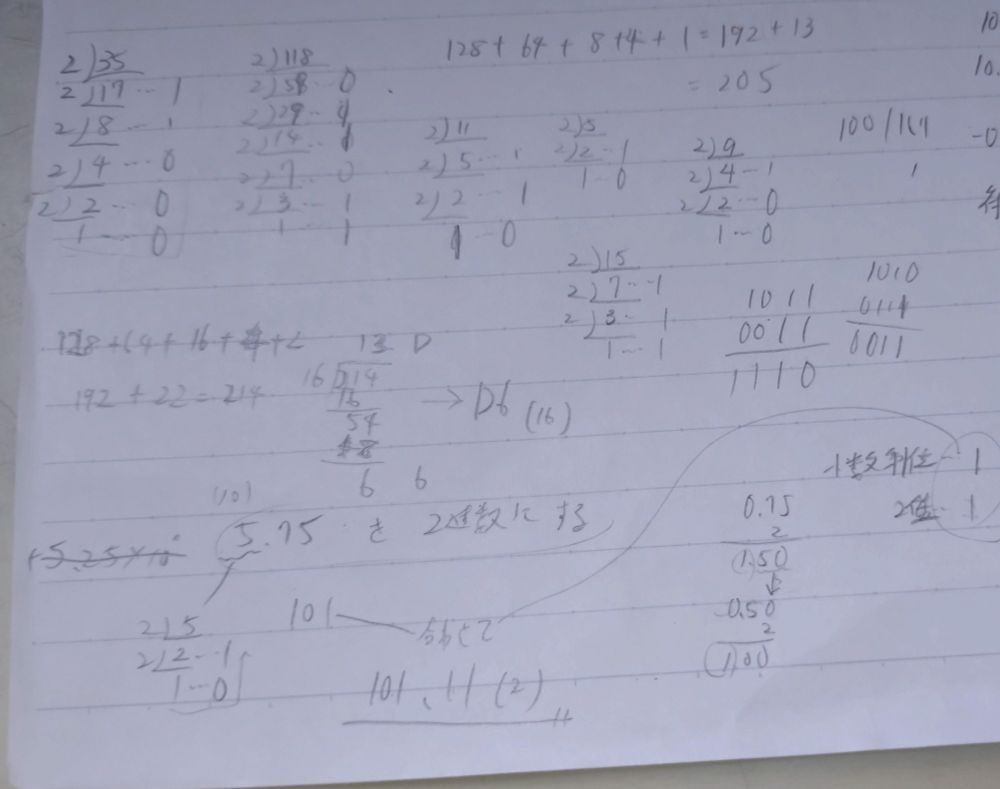 2)35
2)17…1
2)8…1
2)4…0
2)2…0
1…0
2)118
2)58…0
2)29
2)14
2)7…0
2)3…1
1…1
128+64+8+4+1=192+13
=205
2)11
2)5…1
2)2…1
1…0
2)5
2)2…1
1…0
2)9
2)4…1
2)2…0
1…0
2)15
2)7…1
2)3…1
1…1
1011
0011
1110
1010
0011
192+22=214
13 D
16)214
16
54
48
6 6
→D6(16)
(10)
5.75を2進数にする
+5.25×10
2)5
2)2…1
1…0
101
合わせて
101.11(2)
小数第1位…1
2位…1
0.75
2
1.50
0.50
2
1.00
10
10.
-0